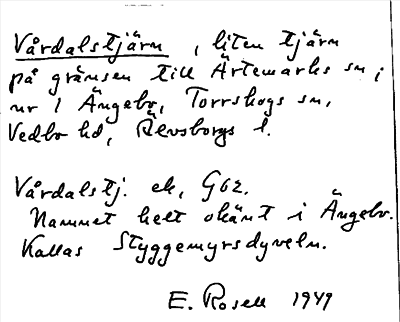 Vårdalstjärn, liten tjärn
på gränsen till Ärtemarks sn i
nr 1 Ängebo, Torrskogs sn,
Vedbo hd, Älvsborgs l.
Vårdalstj. ek, G62.
Namnet helt okänt i Ängebo.
Kallas Styggemyrsdyveln.
E. Rosell 1949